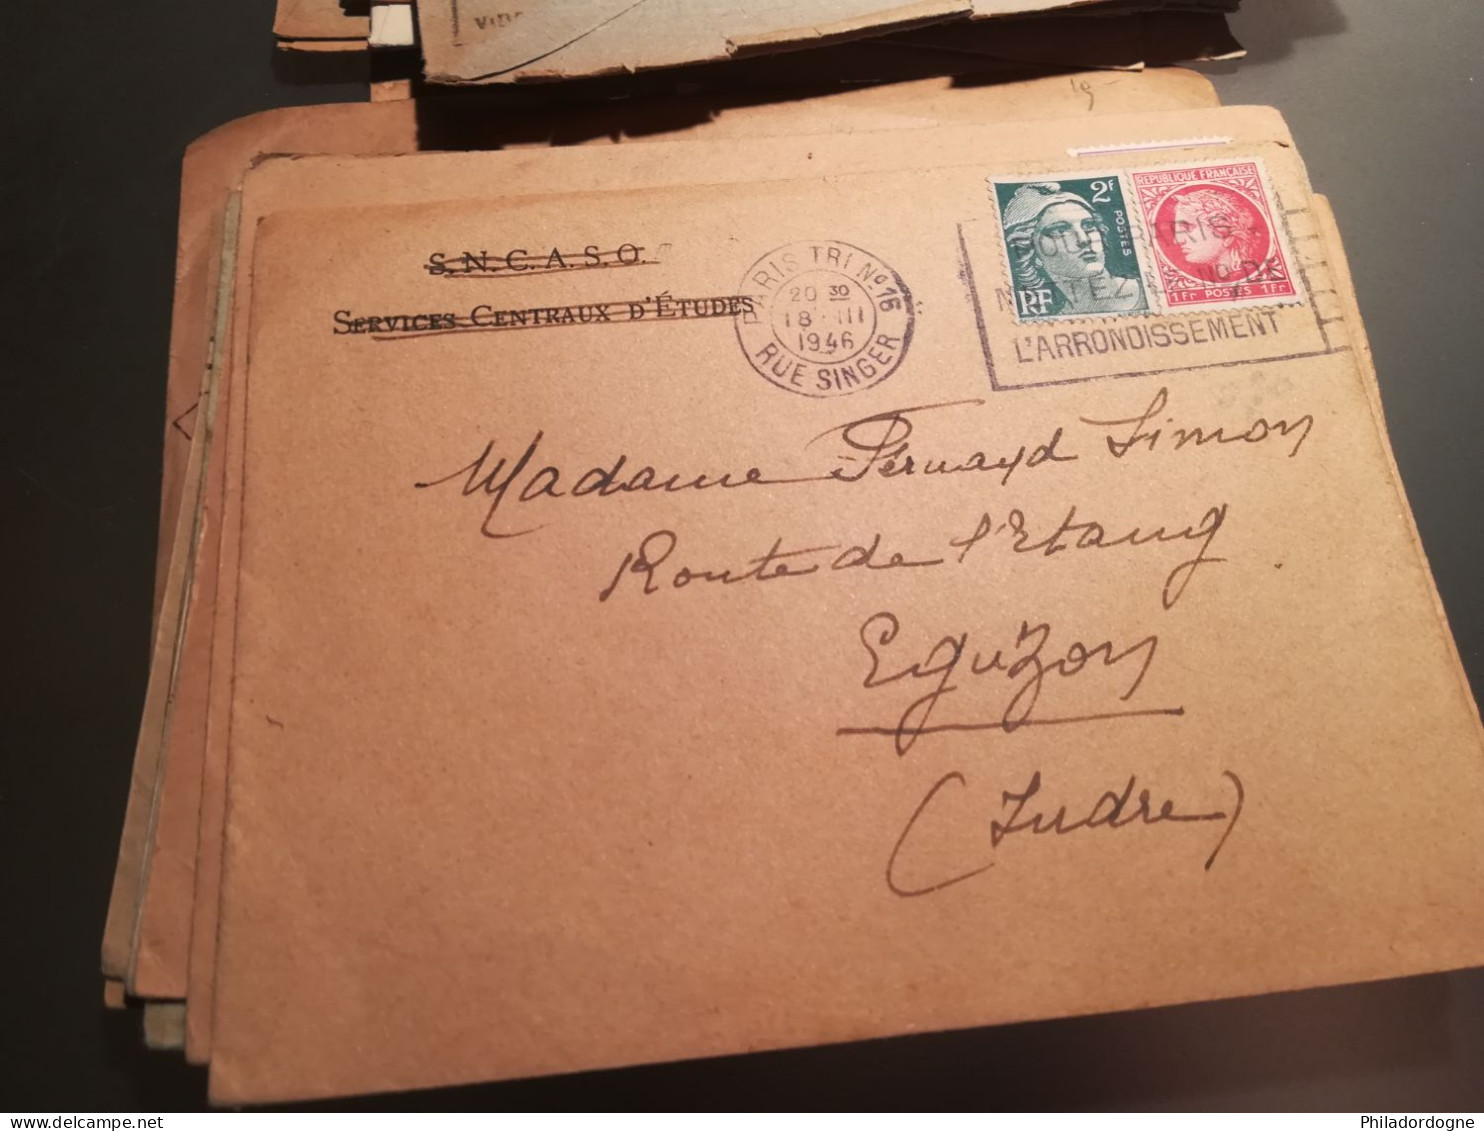 S.N.C.A.S.O.
SERVICES CENTRAUX D'ÉTUDES
PARIS TRI Nº 16
20 30
18 III
1946
RUE SINGER
2F
POSTES
RF
RÉPUBLIQUE FRANÇAISE
1Fr POSTES 1Fr
PARIS
Nº DE
L'ARRONDISSEMENT
Madame Fernand Simon
Route de l'Etang
Eguzon
(Indre)
Philadordogne